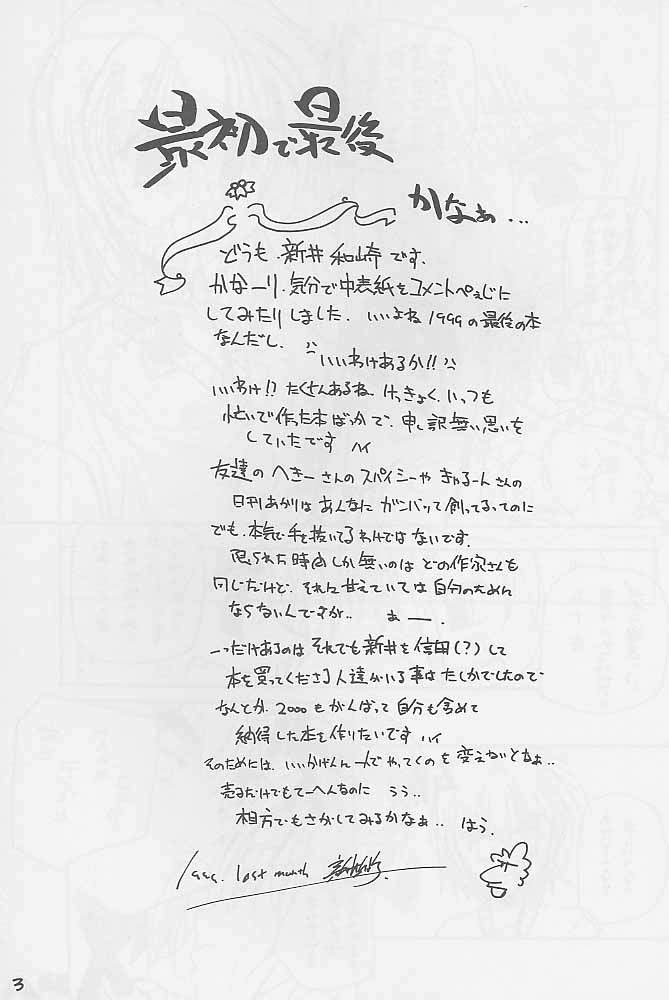 最初で最後
かなぁ...
どうも.新井和崎です.
かなーり.気分で中表紙をコメントぺぇじに
してみたりしました. いいよね1999の最後の本
なんだし.
いいわけあるか!!
いいわけ!? たくさんあるね. けっきょく.いっつも
忙いで作った本ばっかで.申し訳無い思いを
していたです ハイ
友達の へきーさんのスパイシーや きゃるーんさんの
日刊あかりは あんなに ガンバッて創ってるってのに
でも.本気で手を抜いてるわけではないです.
限られた時間しか無いのは どの作家さんも
同じだけど. それに甘えていては自分のために
ならないんですが.. ぁー.
一つだけあるのは それでも新井を信用(?)して
本を買ってくださる人達がいる事は たしかでしたので
なんとか. 2000もがんばって自分も含めて
納得した本を作りたいです ハイ
そのためには. いいかげん一人でやってくのを変えないとなぁ..
売るだけでもてーへんなのに うう..
相方でもさがしてみるかなぁ.. はう.
1999. last month
3